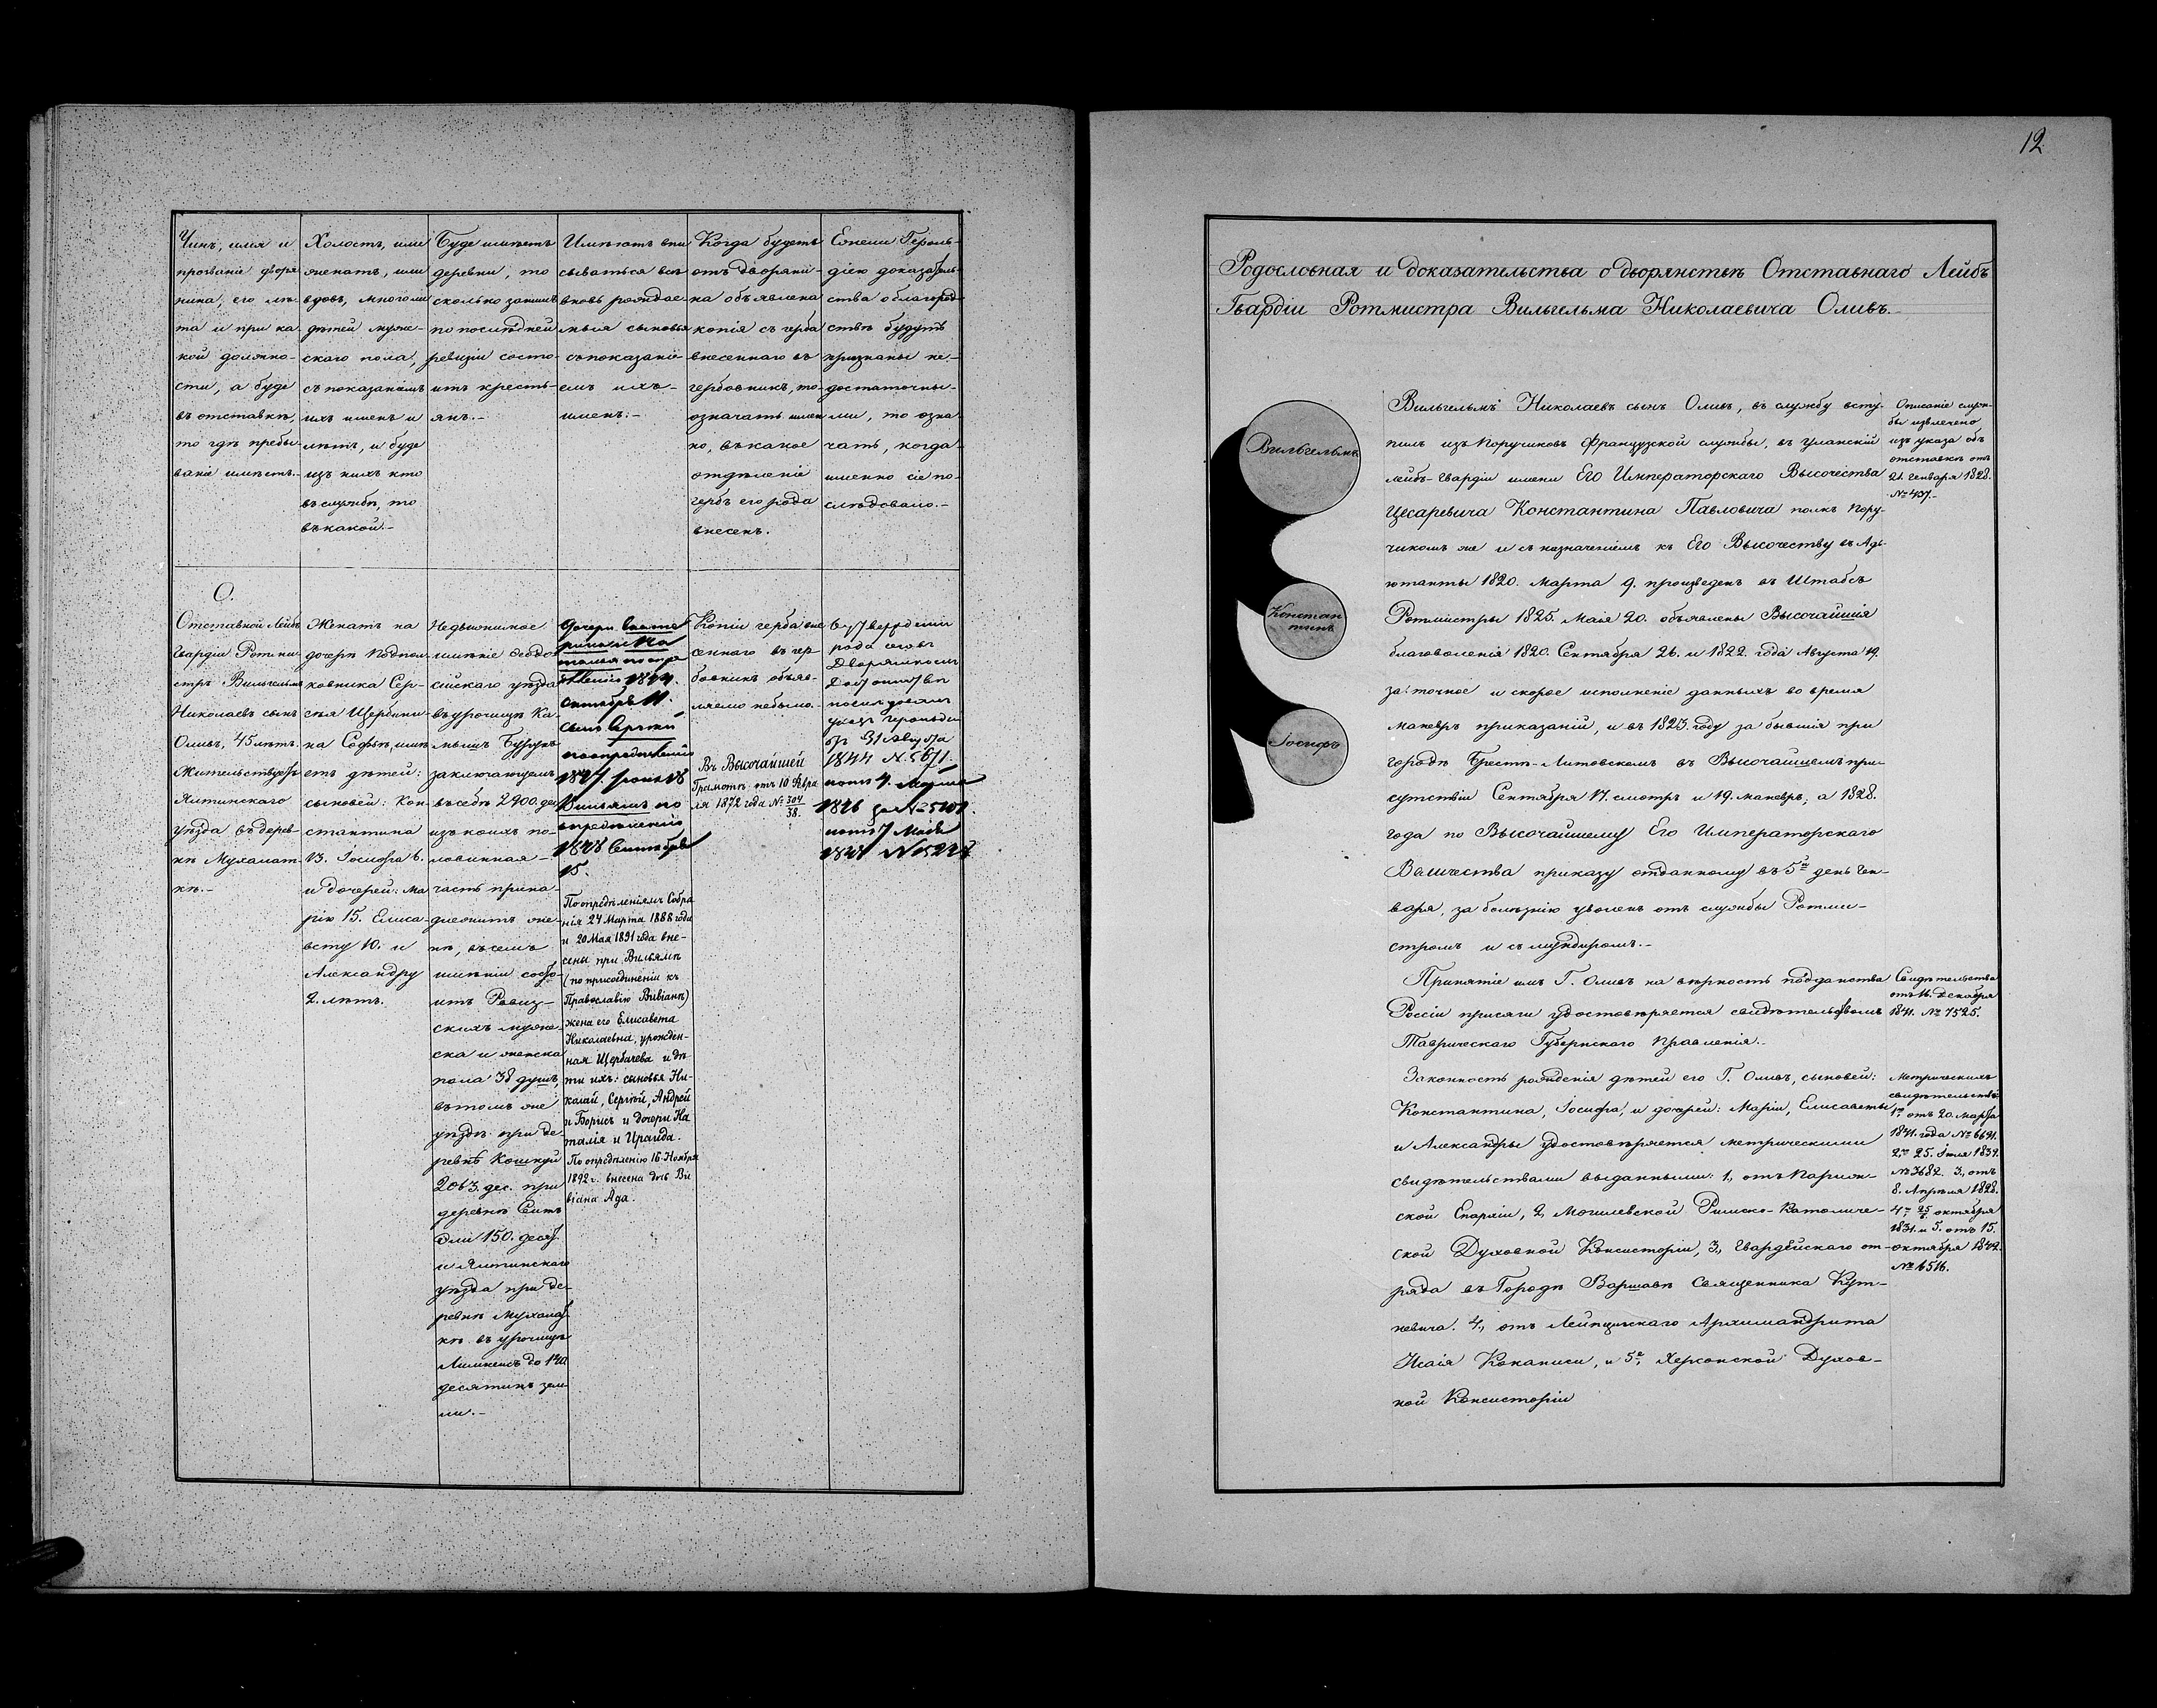 Чинъ, имя и
прозваніе дворя
нина, его лѣ-
та и при ка-
кой должно-
сти, а буде
въ отставкѣ,
то гдѣ пребы-
ваніе имѣетъ.-
Холостъ, или
женатъ, или
вдовъ, много ли
дѣтей муже-
скаго пола,
съ показаніемъ
ихъ именъ и
лѣтъ, и буде
изъ нихъ кто
въ службѣ, то
въ какой.-
Буде имѣетъ
деревни, то
сколько за нимъ
по последней
ревизіи состо-
итъ кресть-
янъ.-
Имѣютъ впи
сываться всѣ
вновь рождае-
мыя сыновья
съ показані-
емъ ихъ-
именъ.-
Когда будетъ
отъ дворяни-
на объявлена
копія съ герба
внесеннаго въ
гербовникъ, то-
означать имен
но, въ какое
отдѣленіе
гербъ его рода
внесенъ.
Ежели Героль-
діею доказатель-
ства о благород-
ствѣ будутъ
признаны не-
достаточны-
ми, то озна-
чать, когда-
именно сіе по-
слѣдовало.-
О.
Отставной Лейбъ
Гвардіи Ротми-
стръ Вильгельмъ
Николаевъ сынъ
Оливъ, 45 лѣтъ.
Жительствуетъ
Ялтинскаго
уѣзда въ дерев-
нѣ Мухалат-
кѣ.-
Женатъ на
дочерѣ Подпол-
ковника Сер-
гѣя Щербини-
на Софьѣ, имѣ
етъ дѣтей:
сыновей: Кон-
стантина
13. Іосифа 6.
и дочерей: Ма
рію 15. Елиса-
вету 10. и
Александру
2. лѣтъ.
Недвижимое
имѣніе Ѳеодо
сійскаго уѣзда
въ урочищѣ Ка-
мышъ Бурунъ
заключающемъ
въ себѣ 2900. дес
изъ коихъ по-
ловинная-
часть прина-
длежитъ же-
нѣ, въ семъ
имѣніи состо-
итъ Ревиз-
скихъ муже-
ска и женска
пола 38 душъ,
въ томъ же
уѣздѣ при де
ревнѣ Кошкуй
2063. дес. при
деревнѣ Сеитъ
Эли 150. десят.
и Ялтинскаго
уѣзда при де-
ревнѣ Мухалат
кѣ въ урочищѣ
до
десятинъ зем
ли.-
Дочери Екате
рина и На
талія по опре
дѣленію 1844.
октября 11.
Сынъ Сергѣй
по опредѣленію
1847 іюня 18
Вильямъ по
опредѣленію
1848 Сентября
15.
По опредѣленіямъ Собра
нія 24 Марта 1888 года
и 20 Мая 1891 года вне-
сены при Вильямѣ
(по присоединеніи къ
Православію Вивіанѣ)
жена его Елисавета
Николаевна, урожден-
ная Щербачева и дѣ
ти ихъ: сыновья Ни-
колай, Сергѣй, Андрей
и Борисъ и дочери На
талія и Ираида.
По опредѣленію 16 Ноября
1892 г. внесена дочь Ви
віана Ада.
Копіи герба вне
сеннаго въ гер
бовникъ объяв-
ляемо небыло.-
Въ Высочайшей
Грамотѣ отъ 10 Февра
ля 1872 года № 304/38.
рода
Дворянскомъ
31 Августа
1844 № 5671.
1846 за №
1848 №
12
Родословная и доказательства о дворянствѣ Отставнаго Лейбъ
Гвардіи Ротмистра Вильгельма Николаевича Оливъ.-
Вильгельмъ
Констан
тинъ
Іосифъ
Вильгельмъ Николаевъ сынъ Оливъ, въ службу всту-
пилъ изъ Поручиковъ Французской службы, въ Уланскій
Лейбъ-Гвардіи имени Его Императорскаго Высочества
Цесаревича Константина Павловича полкъ Пору-
чикомъ же и съ назначеніемъ къ Его Высочеству въ Адъ-
ютанты 1820. Марта 9. произведенъ въ Штабсъ
Ротмистры 1825. Маія 20. объявлены Высочайшія
благоволенія 1820. Сентября 26. и 1822. года Августа 19.
за точное и скорое исполненіе данныхъ во время
маневръ приказаній, и въ 1823. году за бывшія при
городѣ Брестъ-Литовскомъ въ Высочайшемъ при-
сутствіи Сентября 17. смотръ и 19. маневръ; а 1828.
года по Высочайшему Его Императорскаго
Величества приказу отданному въ 5й день Ген-
варя, за болѣзнію уволенъ отъ службы Ротми-
стромъ и съ мундиромъ.-
Принятіе имъ Г. Оливъ на вѣрность подданства
Россіи присяги удостовѣряется свидѣтельствомъ
Таврическаго Губернскаго Правленія.-
Законность рожденія дѣтей его Г. Оливъ, сыновей:
Константина, Іосифа, и дочерей: Маріи, Елисаветы
и Александры удостовѣряется метрическими
свидѣтельствами выданными: 1, отъ Париж-
ской Епархіи, 2, Могилевской Римско-Католиче-
ской Духовной Консисторіи, 3, Гвардейскаго от-
ряда въ Городѣ Варшавѣ Священника Кут-
невича. 4, отъ Лейпцигскаго Архимандрита
Исаія и 5е, Херсонской Духов-
ной Консисторіи
Описаніе служ-
бы извлечено
изъ указа объ
отставкѣ отъ
21. Генваря 1828.
№ 437.-
Свидѣтельства
отъ 16. Декабря
1841. № 7525.
Метрическихъ
свидѣтельствъ
1е, отъ 20. Марта
1841. года № 6691.
2е 25. Іюля 1839.
№ 3682. 3, отъ
8. Апрѣля 1828.
4е, 25/6 октября
1831. и 5. отъ 15.
октября 1842.
№ 6516.